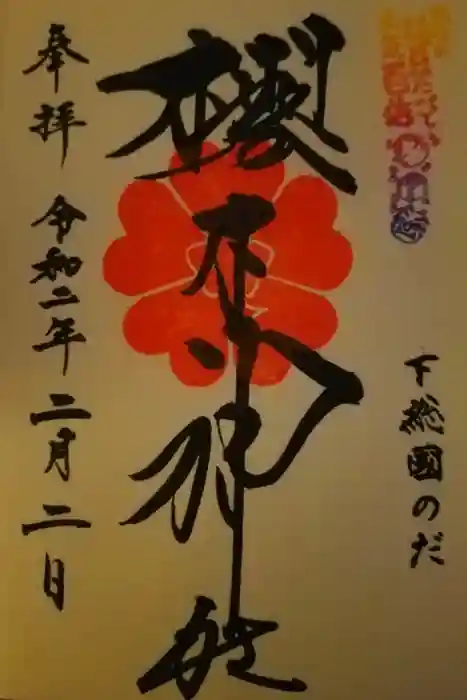 下総國のだ
櫻木神社
奉拝 令和二年 二月 二日